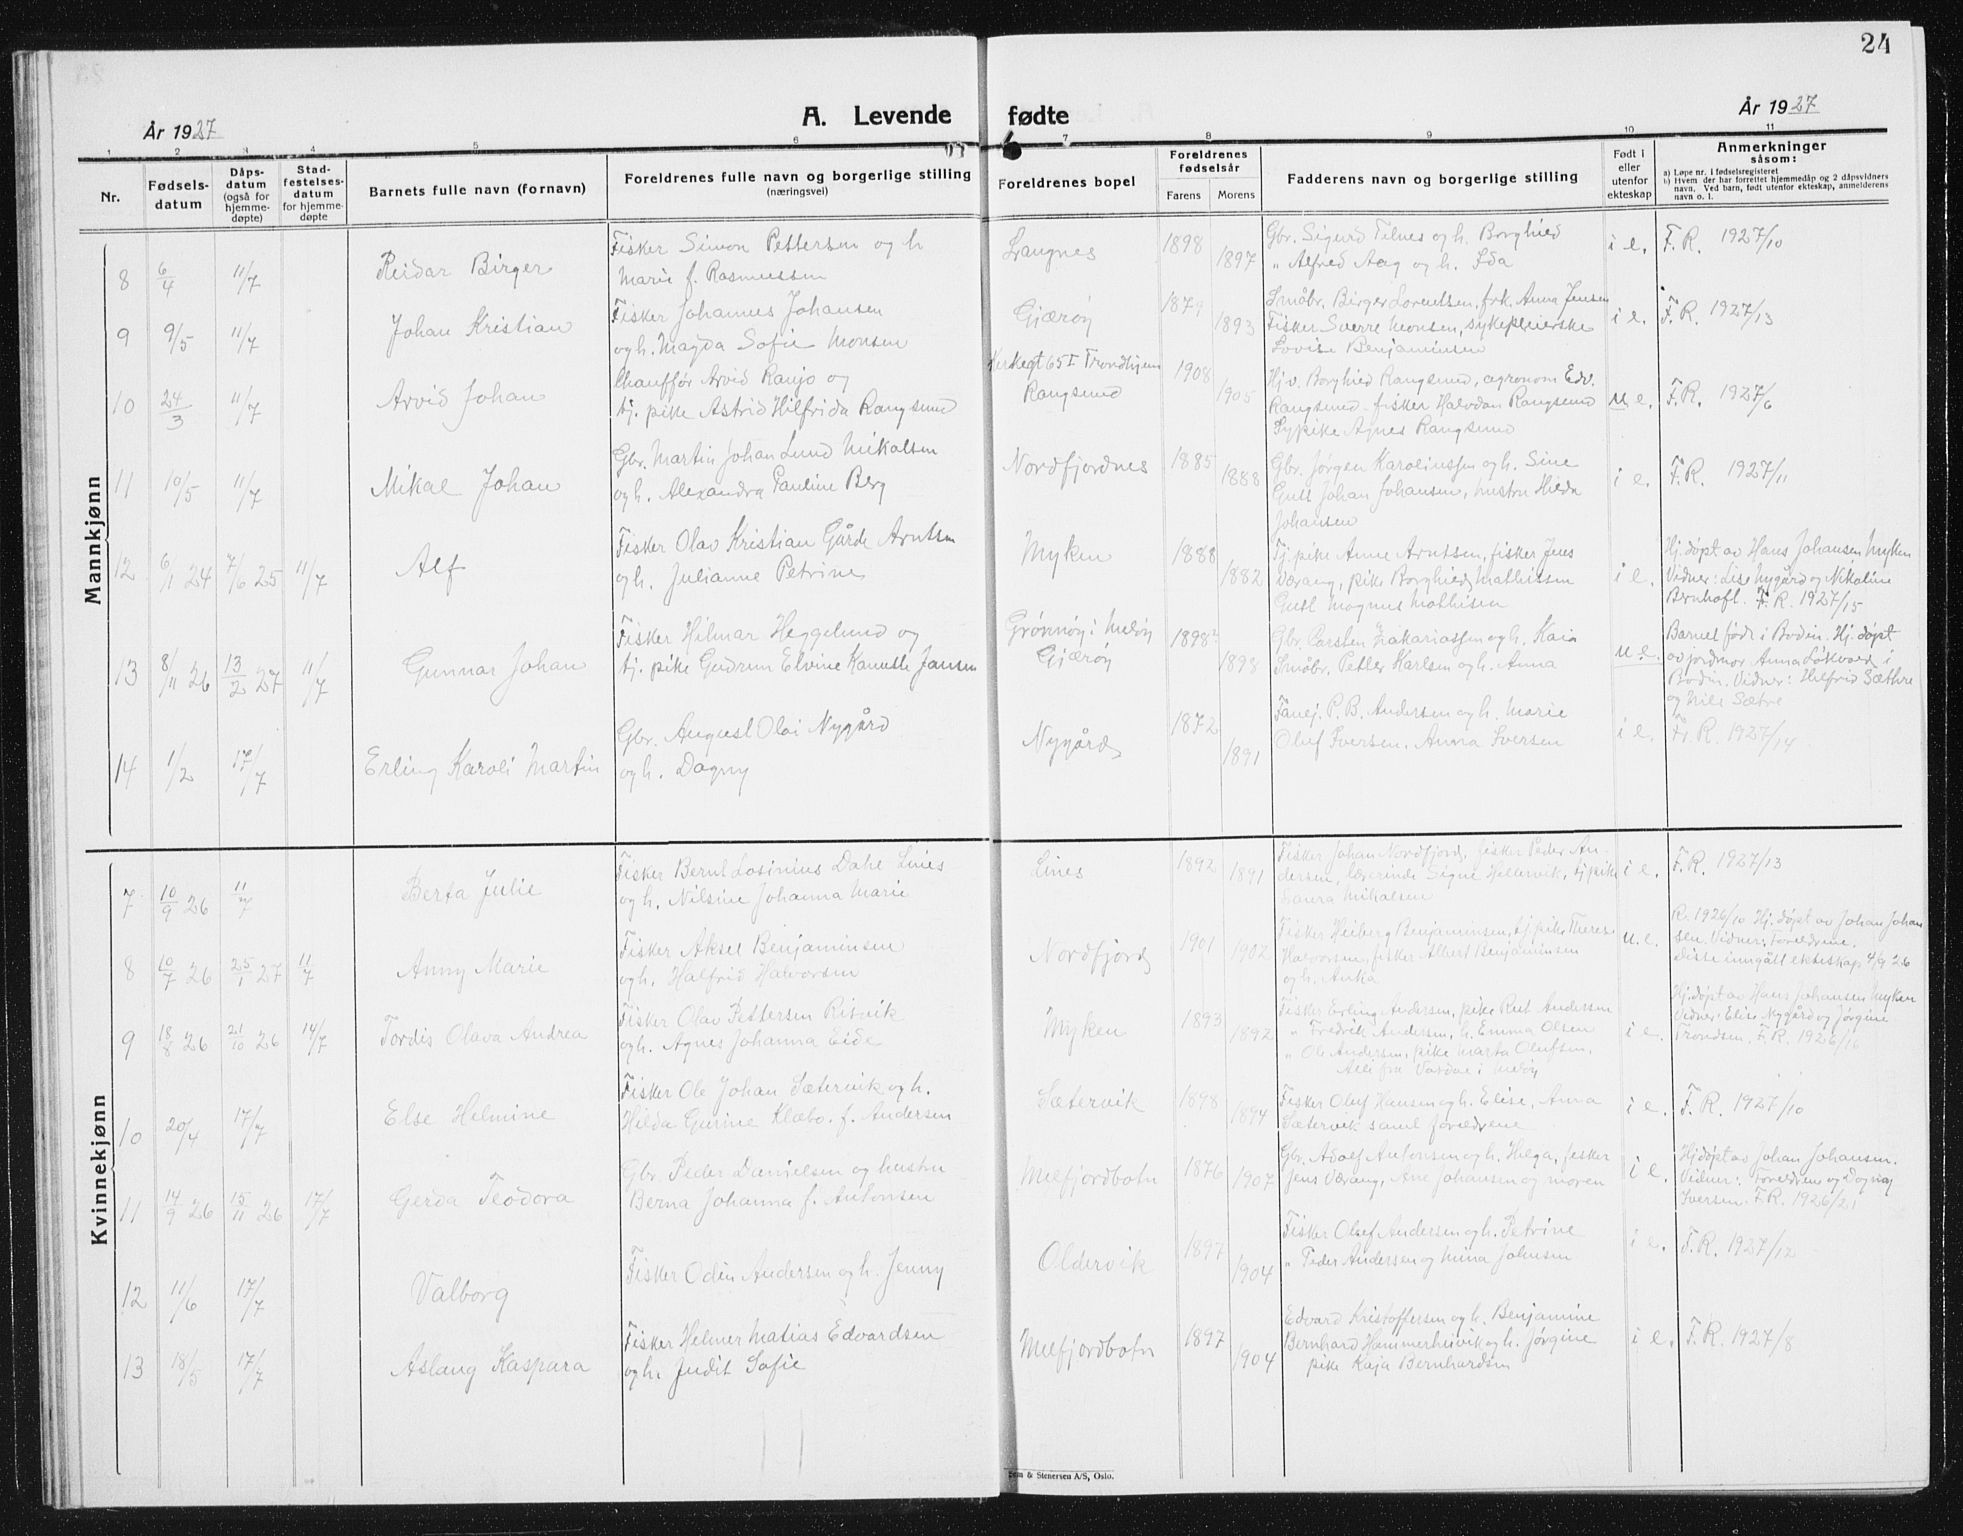 24
År 1927
A. Levende fødte
År 1927
1 2 3 4 5 6 7 8 9 10 11
Nr.
Fødsels-
datum
Dåps-
datum
(også for
hjemme-
døpte)
Stad-
festelses-
datum
for hjemme-
døpte
Barnets fulle navn (fornavn)
Foreldrenes fulle navn og borgerlige stilling
(næringsvei)
Foreldrenes bopel
Foreldrenes
fødselsår
Farens Morens
Fadderens navn og borgerlige stilling
Født i
eller
utenfor
ekteskap
Anmerkninger
såsom:
a) Løpe nr. i fødselsregisteret
b) Hvem der har forrettet hjemmedåp og 2 dåpsvidners
navn. Ved barn, født utenfor ekteskap, anmelderens
navn o. l.
Mannkjønn
8 6/4 11/7 Reidar Birger
Fisker Simon Pettersen og h
Marie f. Rasmussen
Langnes 1898 1897
Gbr. Sigurd Tilnes og h. Borghild
" Alfred Aag og h. Ida
i e. F.R. 1927/10
9 9/5 11/7 Johan Kristian
Fisker Johannes Johansen
og h. Magda Sofie Monsen
Gjærøy 1879 1893
Småbr. Birger Lorentsen, frk. Anna Jensen
Fisker Sverre Monsen, sykepleierske
Lovise Benjaminsen
i e. F.R. 1927/13
10 24/3 11/7 Arvid Johan
Chauffør Arvid Ranjo og
tj. pike Astrid Hilfrida Rangsund
65 I Trondhjem
Rangsund 1908 1905
Hjv. Borghild Rangsund, agronom Edv.
Rangsund, fisker Halvdan Rangsund
Sypike Agnes Rangsund
u e. F.R. 1927/6
11 10/5 11/7 Mikal Johan
Gbr. Martin Johan Lund Mikalsen
og h. Alexandra Pauline Berg
Nordfjordnes 1885 1888
Gbr. Jørgen Karoliussen og h. Sine
Gutt Johan Johansen, hustru Hilda
Johansen
i e. F.R. 1927/11
12 6/1 24 7/6 25 11/7 Alf
Fisker Olav Kristian Gårde Arntsen
og h. Julianne Petrine
Myken 1888 1882
Tj. pike Anne Arntsen, fisker Jens
Værang, pike Borghild Mathissen
Gutt Magnus Mathisen
i e.
Hj. døpt av Hans Johansen Myken
Vidner: Lise Nygård og Nikoline
Bernhoft. F.R. 1927/15
13 8/11 26 13/2 27 11/7 Gunnar Johan
Fisker Hilmar Heggelund og
tj. pike Gudrun Elvine Kanutte Jansen
Grønnøy i Meløy
Gjærøy 1898 1898
Gbr. Carsten Zakariassen og h. Kaia
Småbr. Petter Karlsen og h. Anna
u e.
Barnet født i Bodin. Hj. døpt
av jordmor Anna Løkvold i
Bodin. Vidner: Hilfrid Sæthre
og Nils Sætre
14 1/2 17/7 Erling Karoli Martin
Gbr. August Olai Nygård
og h. Dagny
Nygård 1872 1891
P. B. Andersen og h. Marie
Oluf Iversen. Anna Iversen
i e. F.R. 1927/14
Kvinnekjønn
7 10/9 26 11/7 Berta Julie
Fisker Bernt Losinius Dahl Lines
og h. Nilsine Johanna Marie
Lines 1892 1891
Fisker Johan Nordfjord, fisker Peder An-
dersen, lærerinde Signe Hellervik, tj pike
Laura Mikalsen
i e. F.R. 1927/13
8 10/7 26 25/1 27 11/7 Anny Marie
Fisker Aksel Benjaminsen
og h. Halfrid Halvorsen
Nordfjord 1901 1902
Fisker Heiberg Benjaminsen, tj. pike Therese
Halvorsen, fisker Albert Benjaminsen
og h. Anka
u. e.
R. 1926/10 Hj. døpt av Johan Johan
sen. Vidner: Foreldrene.
Disse inngått ekteskap 4/9 26
9 18/8 26 21/10 26 14/7 Tordis Olava Andrea
Fisker Olav Pettersen Risvik
og h. Agnes Johanna Eide
Myken 1893 1892
Fisker Erling Andersen, pike Rut Andersen
" Fredrik Andersen, h. Emma Olsen
" Ole Andersen, pike Marta Olufsen,
Alle fra Valdne i Meløy
i e.
Hj. døpt av Hans Johansen Myken
Vidner: Elise Nygård og Jørgine
Trondsen. F.R. 1926/16
10 20/4 17/7 Else Helmine
Fisker Ole Johan Sætervik og h.
Hilda Gurine Klæbo. f. Andersen
Sætervik 1898 1894
Fisker Oluf Hansen og h. Elise, Anna
Sætervik samt foreldrene
i e. F.R. 1927/10
11 14/9 26 15/11 26 17/7 Gerda Teodora
Gbr. Peder Danielsen og hustru
Berna Johanna f. Antonsen
Melfjordbotn 1876 1907
Gbr. Adolf Antonsen og h. Helga, fisker
Jens Værang, Arne Johansen og moren
i e.
Hj døpt av Johan Johansen.
Vidner: Foreldrene og Dagny
Iversen. F.R. 1926/21
12 11/6 17/7 Valborg
Fisker Odin Andersen og h. Jenny
Oldervik 1897 1904
Fisker Olaf Andersen og h. Petrine
" Peder Andersen og Mina Johnsen
i e. F.R. 1927/12
13 18/5 17/7 Aslaug Kaspara
Fisker Helmer Matias Edvardsen
og h. Judit Sofie
Melfjordbotn 1897 1904
Edvard Kristoffersen og h. Benjamine
Bernhard Hammerheivik og h. Jørgine
pike Kaja Bernhardsen
i e. F.R. 1927/8
& Stenersen A/S, Oslo.